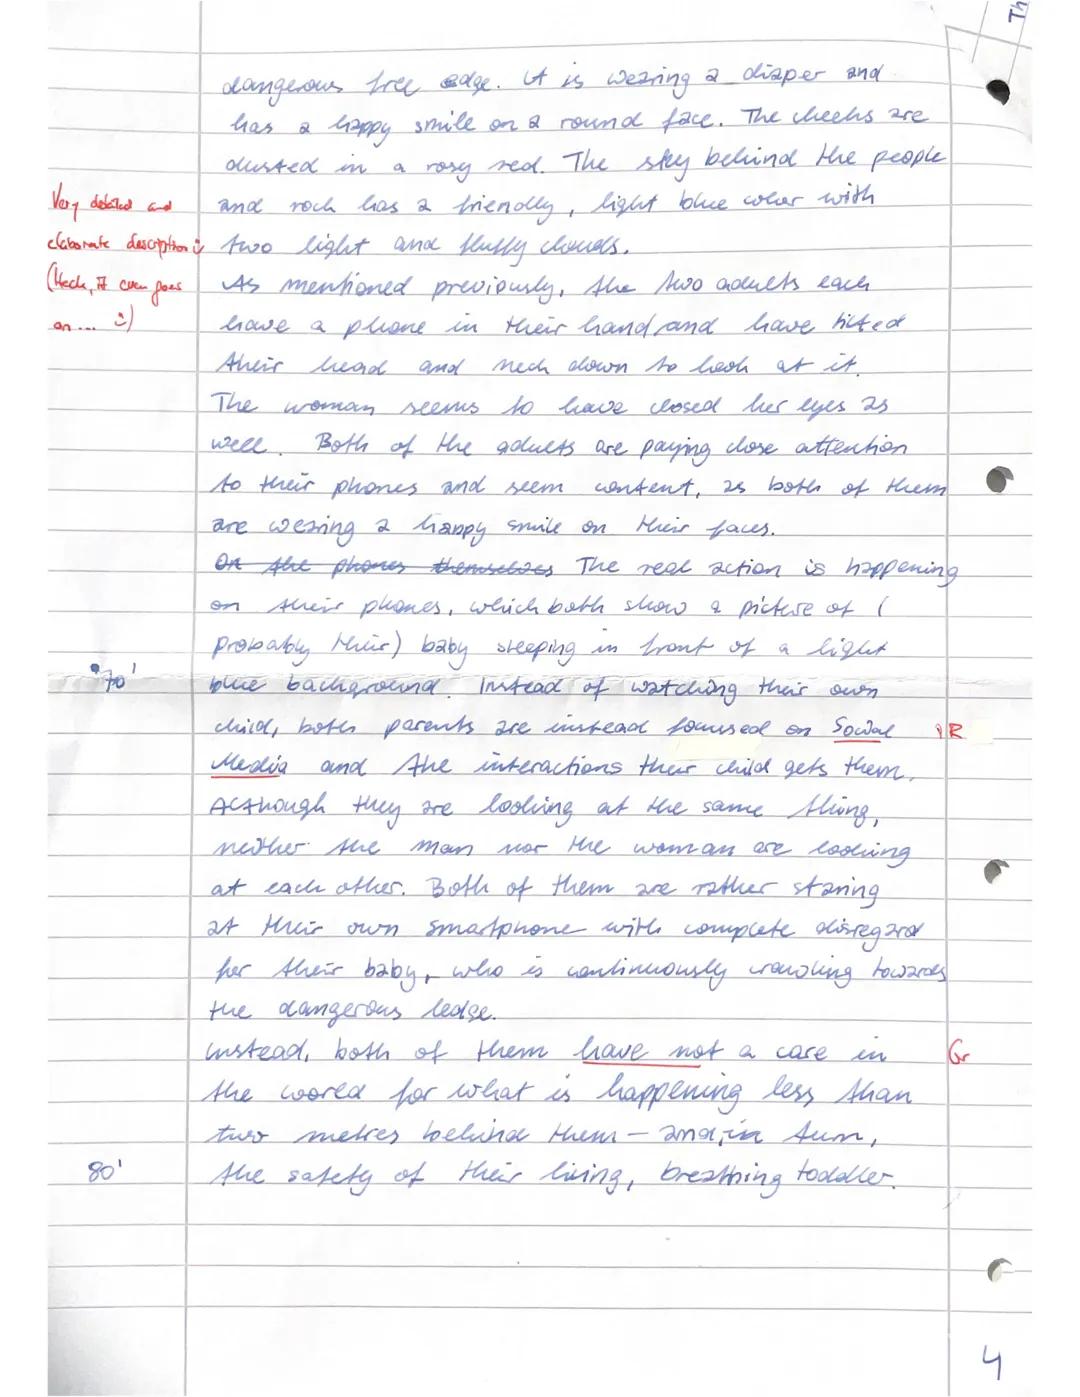 Th
dangerous free edge. It is wearing a diaper and
has a happy smile on a round face. The cheeks are
dusted in a rosy red. The sky behind the people
Very detailed and
and rock has a friendly, light blue color with
elaborate description :)
two light and fluffy clouds.
(Heck, it even goes
As mentioned previously, the two adults each
on... :)
have a phone in their hand, and have tilted
their head and neck down to look at it.
The woman seems to have closed her eyes as
well. Both of the adults are paying close attention
to their phones and seem content, as both of them
are wearing a happy smile on their faces.
On the phones themselves The real action is happening
on their phones, which both show a picture of (
probably their) baby sleeping in front of a light
70'
blue background. Instead of watching their own
child, both parents are instead focused on Social R
Media and the interactions their child gets them.
Although they are looking at the same thing,
neither the man nor the woman are looking
at each other. Both of them are rather staring
at their own smartphone with complete disregard
for their baby, who is continuously crawling towards
the dangerous ledge.
Instead, both of them have not a care in Gr
the world for what is happening less than
two metres behind them – and, in turn,
80'
the safety of their living, breathing toddler.
4